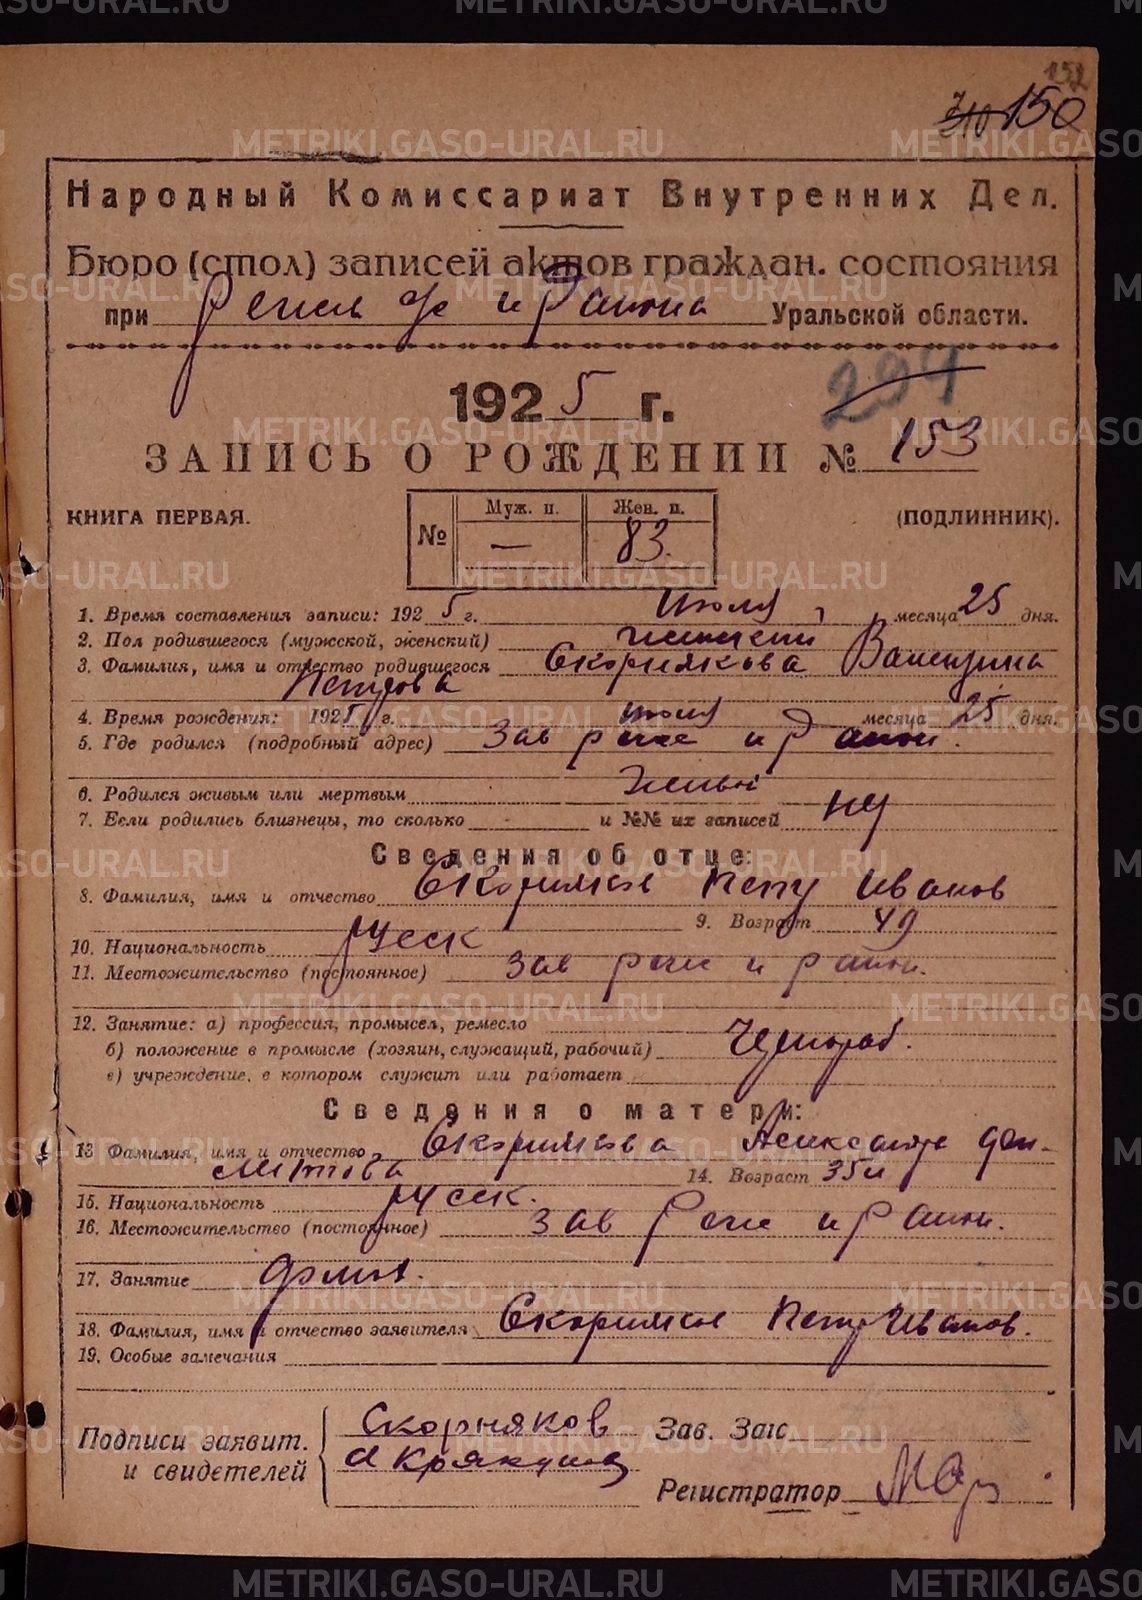 152
310 150
Народный Комиссариат Внутренних Дел.
Бюро (стол) записей актов граждан. состояния
при и Района Уральской области.
1925 г.
294
ЗАПИСЬ О РОЖДЕНИИ № 153
КНИГА ПЕРВАЯ.
(ПОДЛИННИК).
№ Муж. п. Жен. п.
— 83.
1. Время составления записи: 1925 г. Июля месяца 25 дня.
2. Пол родившегося (мужской, женский) женский
3. Фамилия, имя и отчество родившегося Скорнякова Валентина
Петрова
4. Время рождения: 1925 г. июля месяца 25 дня.
5. Где родился (подробный адрес) Зав и Район.
6. Родился живым или мертвым живы
7. Если родились близнецы, то сколько и №№ их записей
Сведения об отце:
8. Фамилия, имя и отчество Скорняков Петр Иванов
9. Возраст 49
10. Национальность русск
11. Местожительство (постоянное) Зав и район.
12. Занятие: а) профессия, промысел, ремесло
б) положение в промысле (хозяин, служащий, рабочий) Чернораб.
в) учреждение, в котором служит или работает
Сведения о матери:
13 Фамилия, имя и отчество Скорнякова Александра
14. Возраст 35 л
15. Национальность русск.
16. Местожительство (постоянное) Зав и Район.
17. Занятие
18. Фамилия, имя и отчество заявителя Скорняков Петр Иванов.
19. Особые замечания
Подписи заявит.
и свидетелей
Скорняков
Зав. Загс
Регистратор
METRIKI.GASO-URAL.RU